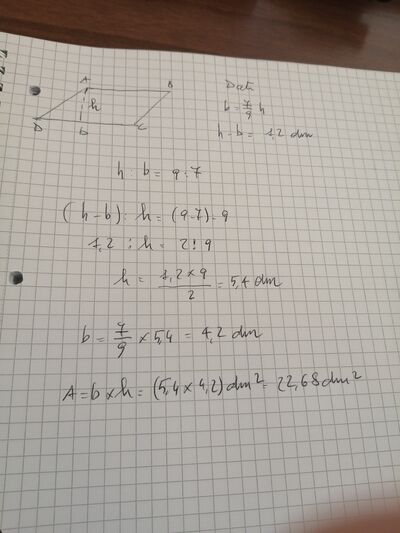 A B
Dati
h
b = 7/9 h
D b C
h - b = 1,2 dm
h : b = 9 : 7
(h - b) : h = (9-7) : 9
1,2 : h = 2 : 9
h = 1,2 x 9 / 2 = 5,4 dm
b = 7/9 x 5,4 = 4,2 dm
A = b x h = (5,4 x 4,2) dm² = 22,68 dm²